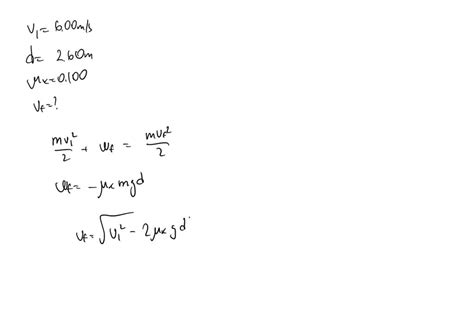 v₁ = 6.00 m/s
d = 2.60 m
μₖ = 0.100
v_f = ?
mv₁²/2 + w_f = mv_f²/2
w_f = -μₖ mgd
v_f = √(v₁² - 2μₖ gd)